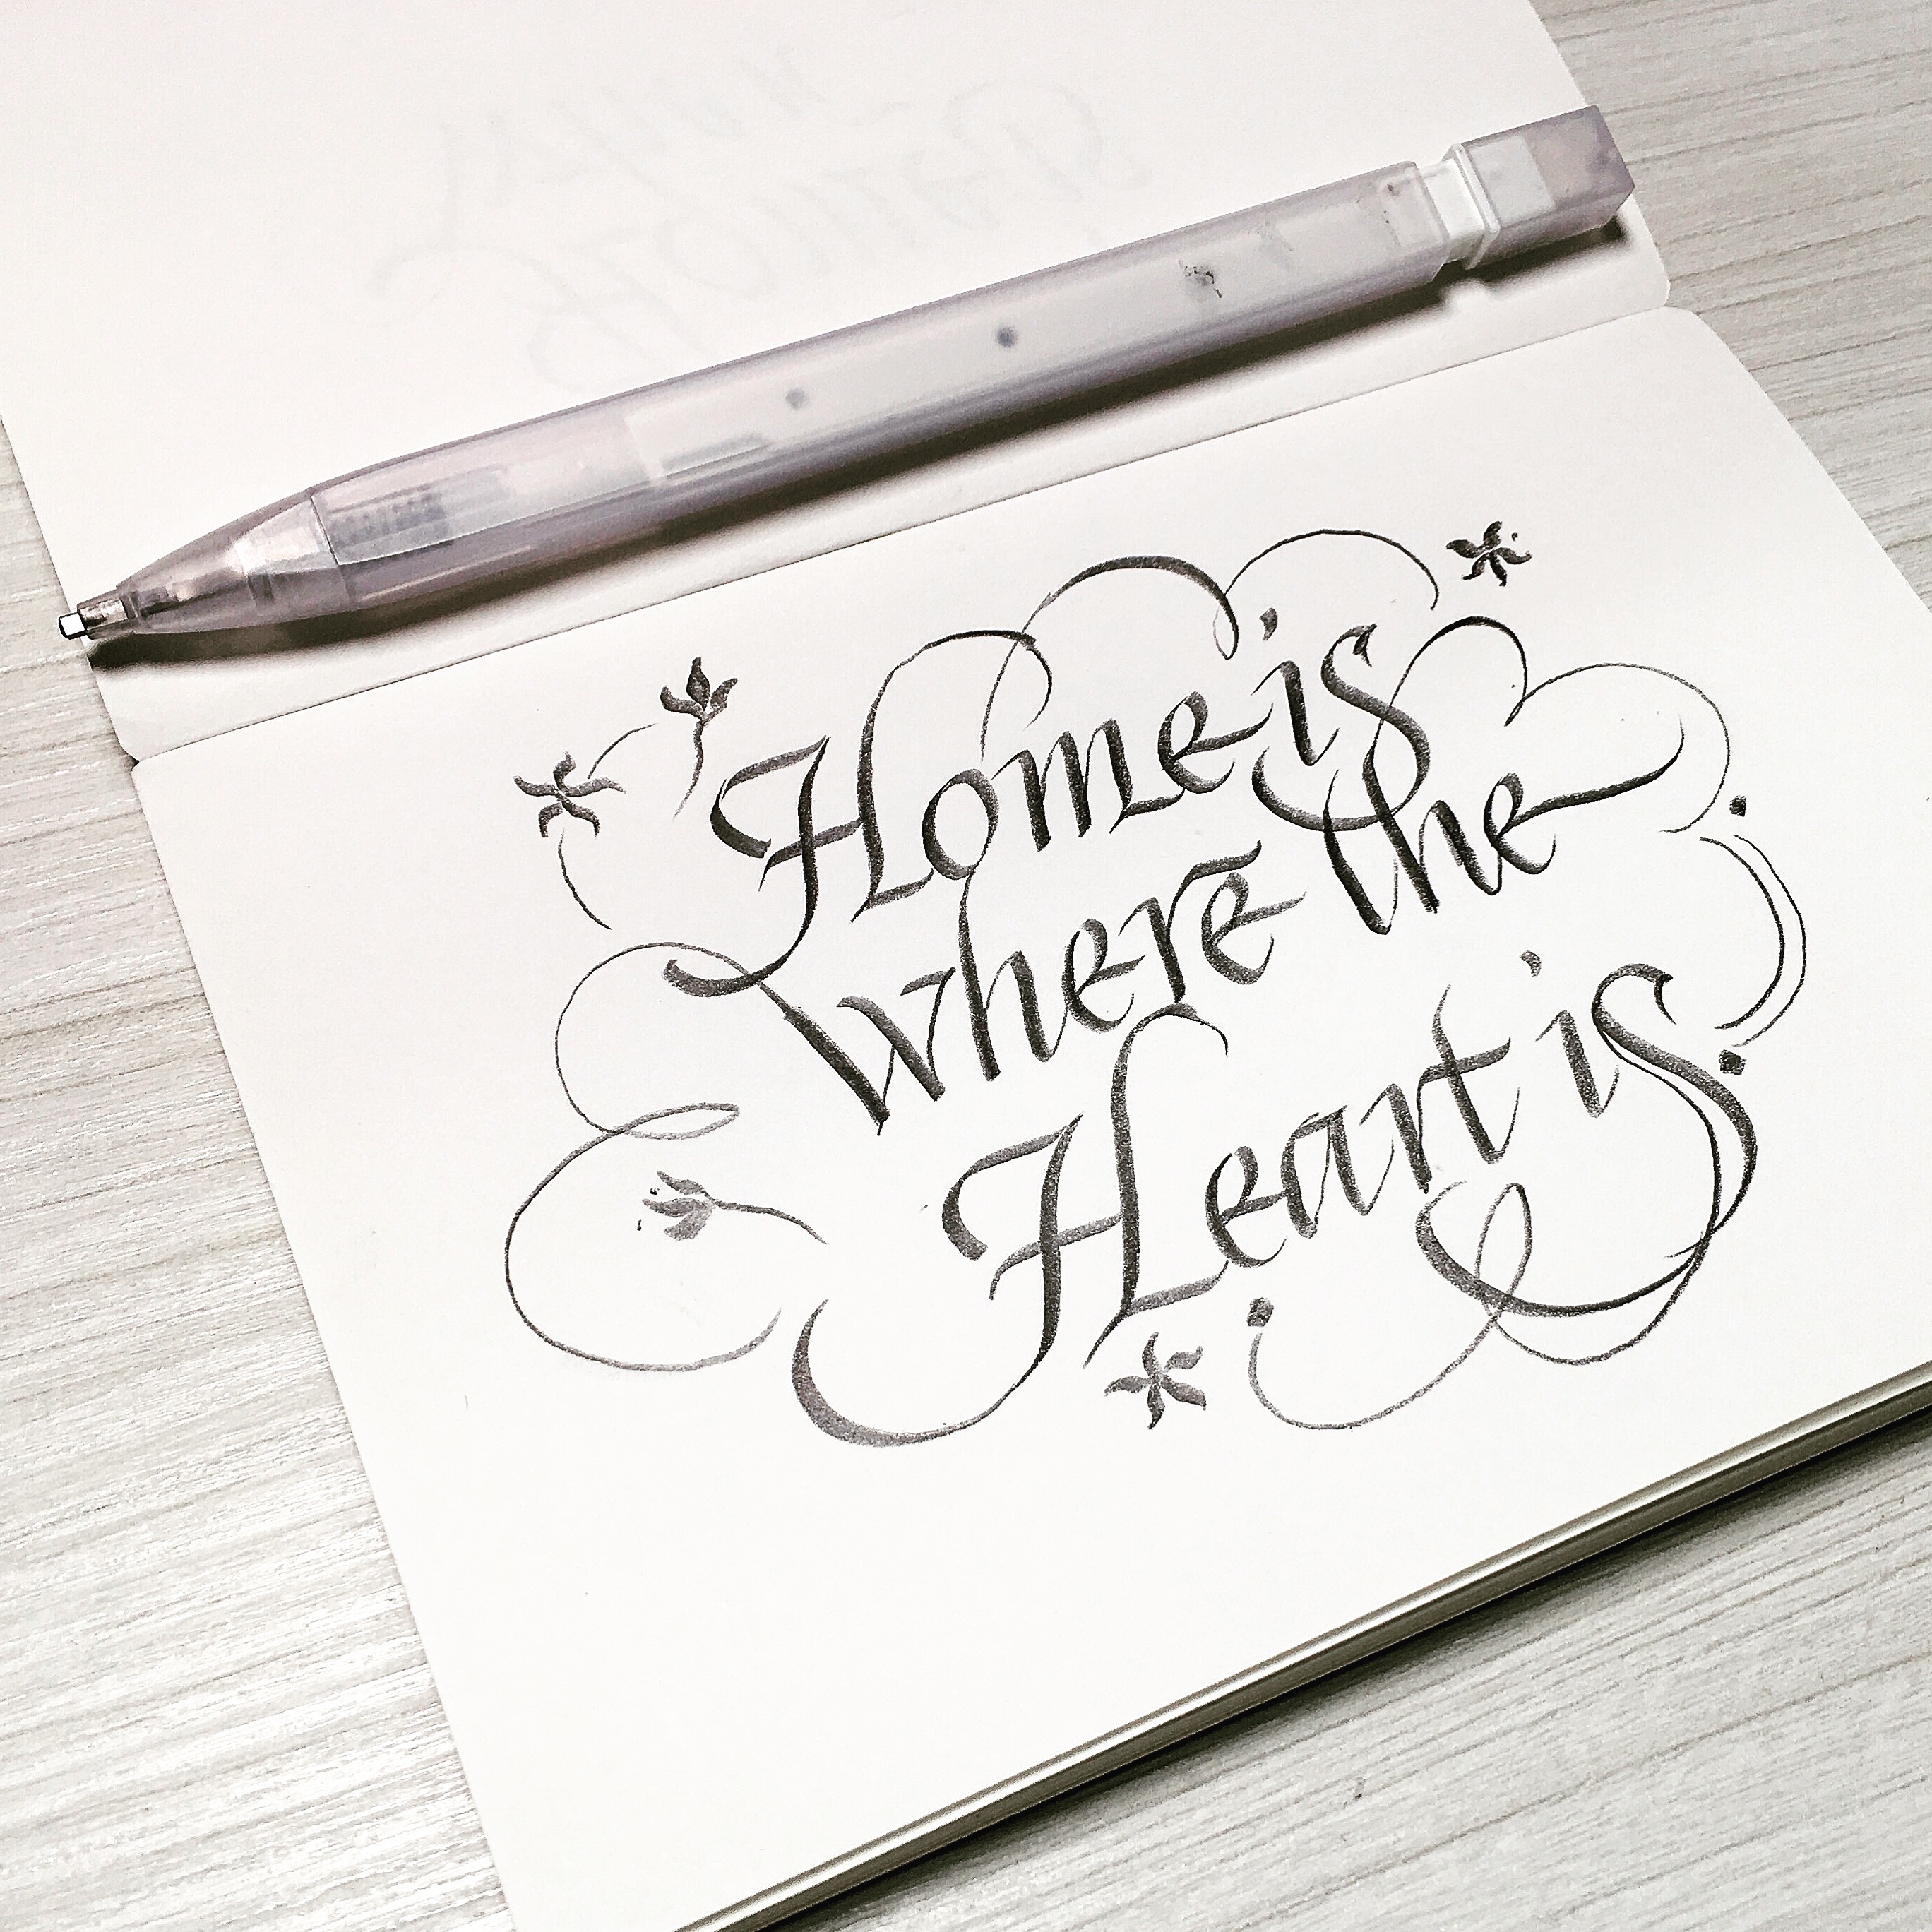 Home is
where the
Heart is.